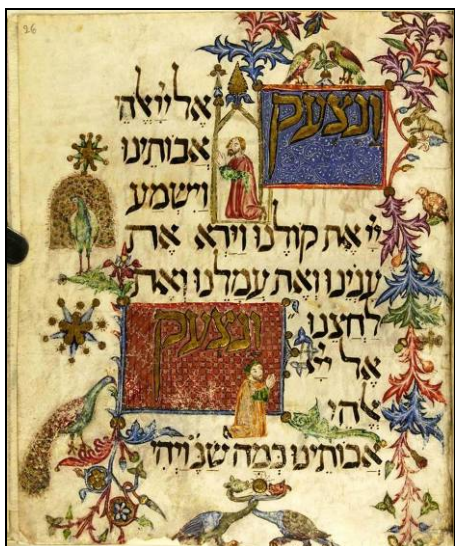 26
ונצעק אל ייאלהי
אבותינו
וישמע
יי את קולנו וירא את
ענינו ואת עמלנו ואת
לחצנו
ונצעק
אל יי
אלהי
אבותינו כמה שנ ויהי